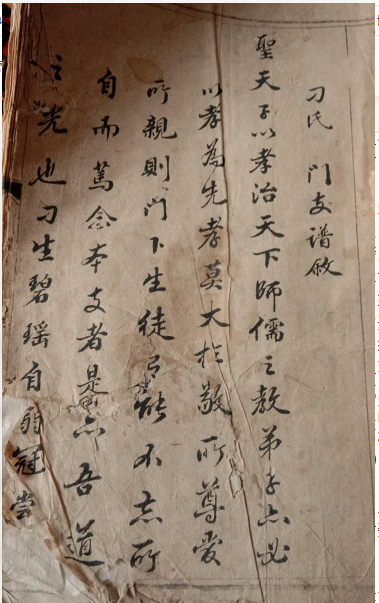 刁氏 门支谱敘
聖天子以孝治天下師儒之教弟子亦必
以孝為先孝莫大於敬所尊爱
所親則门下生徒有能不忘所
自而篤念本支者是亦吾道
光也刁生碧瑶自弱冠尝